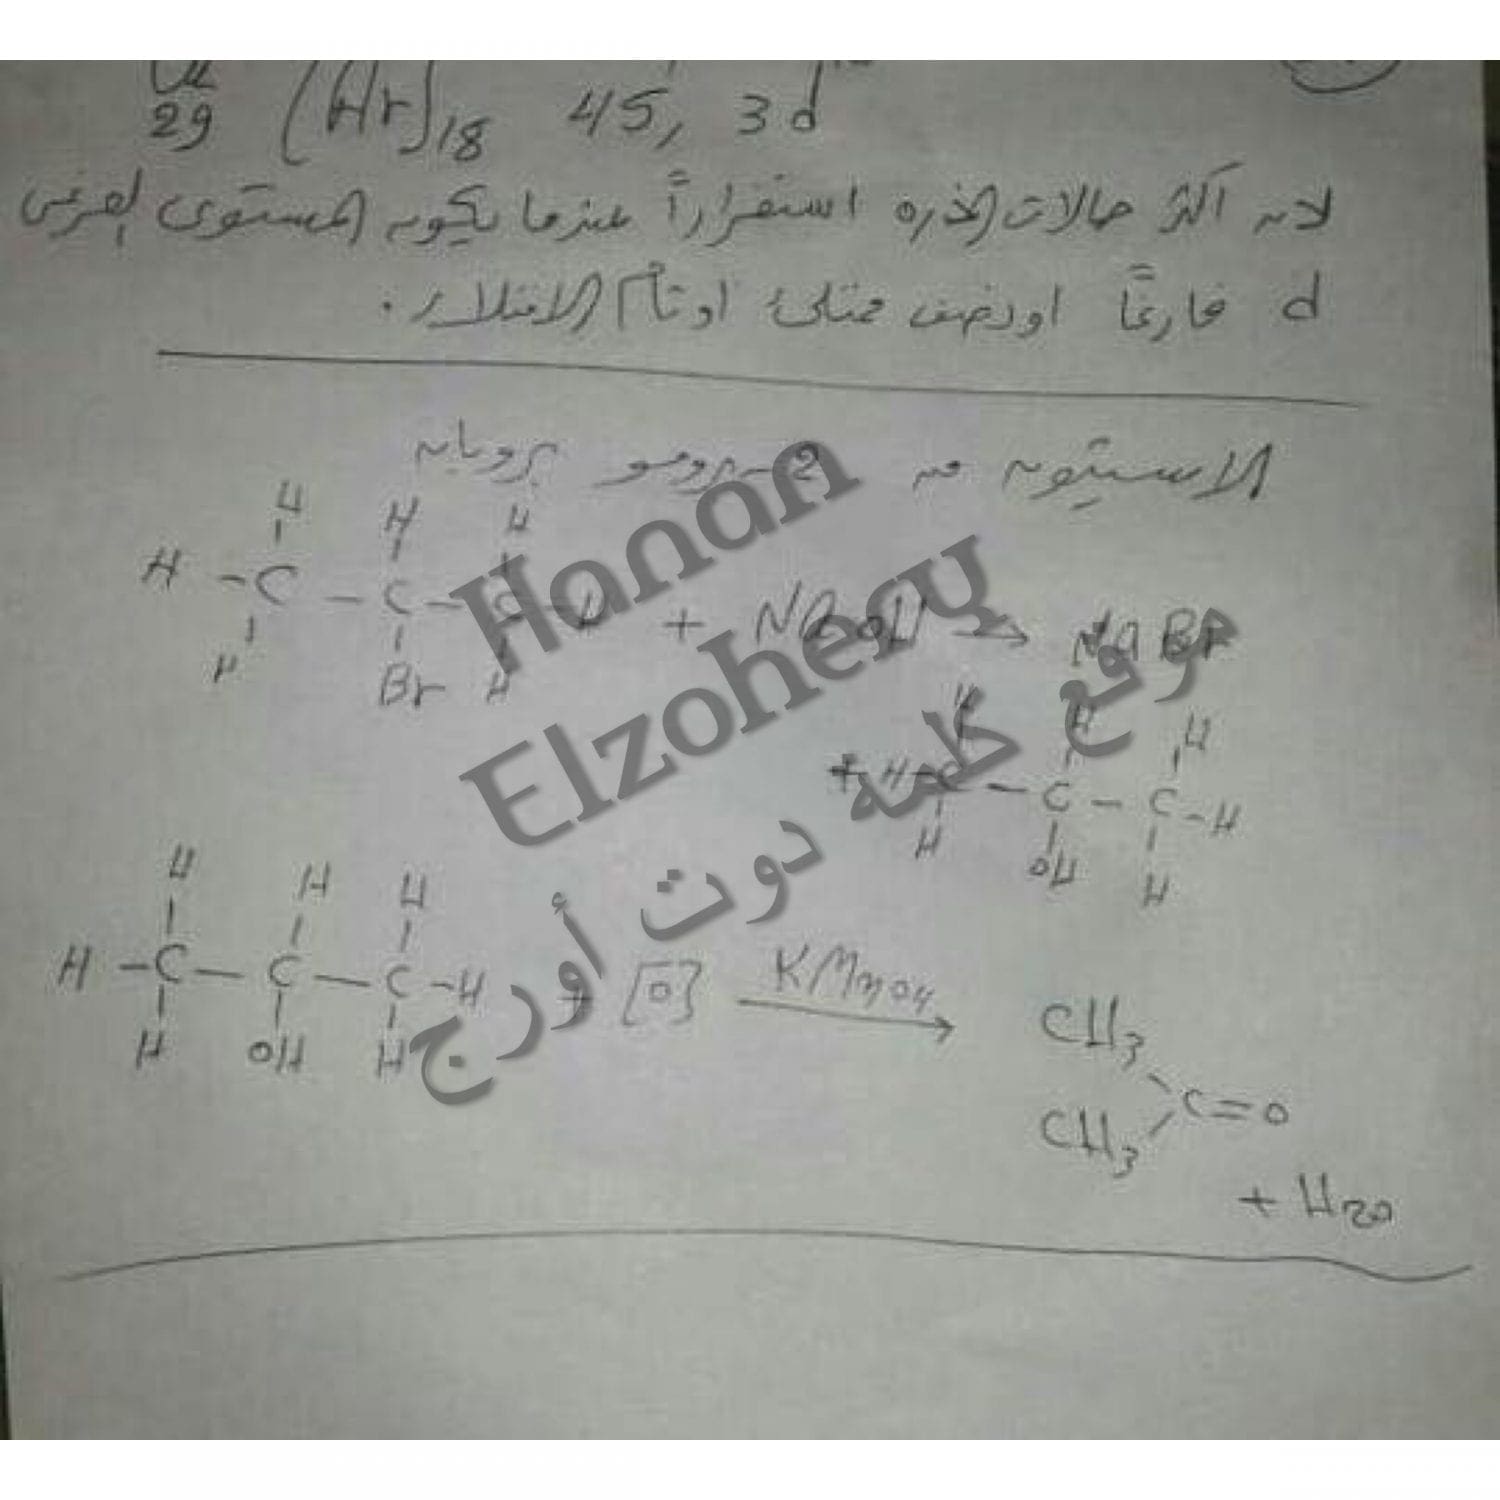 29 (Ar)18 4S, 3d
لأنه أكثر حالات الذره استقراراً عندما يكون المستوى الفرعى
d فارغاً او نصف ممتلئ او تام الامتلاء.
الاسيتون من 2-برومو بروبان
H H H
H - C - C - C - H + NaOH → NaBr
H Br H
H H H
+ H - C - C - C - H
H OH H
H H H
H - C - C - C - H + [O] KMnO4 →
H OH H
CH3
C=O
CH3
+ H2O
Hanan
Elzohery
موقع كلمه دوت أورج